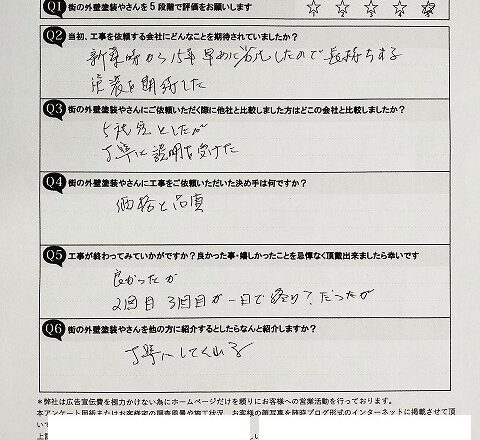 Q1 街の外壁塗装やさんを5段階で評価をお願いします ☆ ☆ ☆ ☆ ☆
Q2 当初、工事を依頼する会社にどんなことを期待されていましたか?
新築時から15年 早めに劣化したので長持ちする
塗装を期待した
Q3 街の外壁塗装やさんにご依頼いただく際に他社と比較しました方はどこの会社と比較しましたか?
5社程としたが
丁寧に説明を受けた
Q4 街の外壁塗装やさんに工事をご依頼いただいた決め手は何ですか?
価格と品質
Q5 工事が終わってみていかがですか?良かった事・嬉しかったことを忌憚なく頂戴出来ましたら幸いです
良かったが
2回目 3回目が一日で終り?だったが
Q6 街の外壁塗装やさんを他の方に紹介するとしたらなんと紹介しますか?
丁寧にしてくれる
*弊社は広告宣伝費を極力かけない為にホームページだけを頼りにお客様への営業活動を行っております。
本アンケート用紙またはお客様宅の調査風景や施工状況、お客様の顔写真を随時ブログ形式のインターネットに掲載させて頂